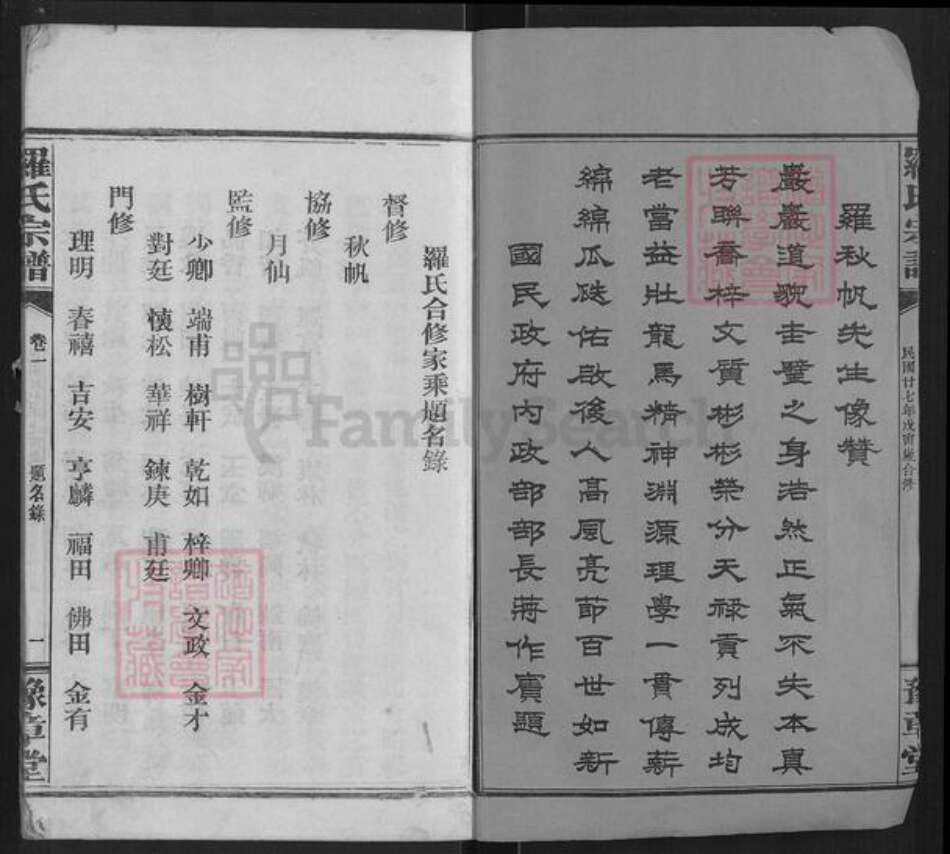 羅氏宗譜
民國廿七年戊寅歲合修
豫章堂
羅秋帆先生像贊
巖巖道貌圭璧之身浩然正氣不失本真
芳聯喬梓文質彬彬榮分天祿貢列成均
老當益壯龍馬精神淵源理學一貫傳薪
綿綿瓜瓞佑啟後人高風亮節百世如新
國民政府內政部部長蔣作賓題
羅氏合修家乘題名錄
督修
秋帆
協修
月仙
監修
少卿 端甫 樹軒 乾如 梓卿 文政 金才
對廷 懷松 華祥 鍊庚 甫廷
門修
理明 春禧 吉安 亨麟 福田 佛田 金有
羅氏宗譜
卷一
題名錄
一
豫章堂
FamilySearch